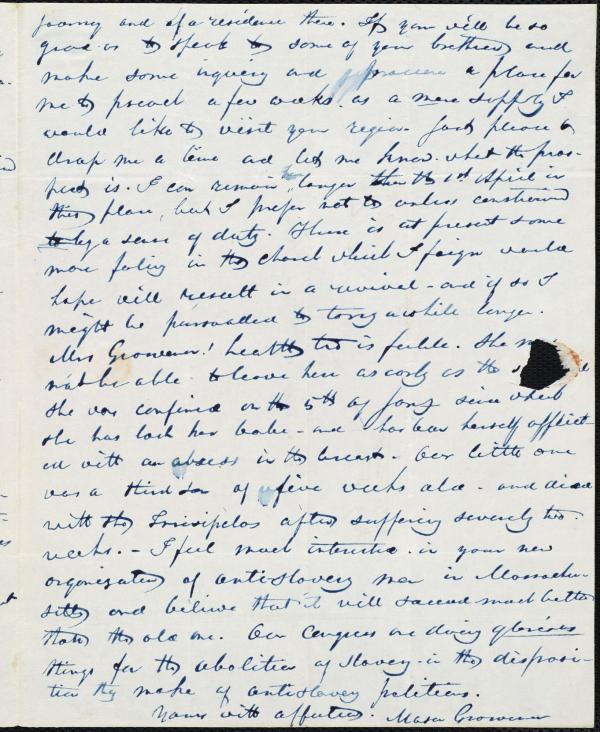 journey and of a residence there. If you will be so
good as to speak to some of your brethren and
make some inquiry and procure a place for
me to preach a few weeks as a mere supply I
would like to visit your region. Just please to
drop me a line and let me know what the pros-
pect is. I can remain longer than the 1st April in
this place, but I prefer not to unless constrained
by a sense of duty. There is at present some
more feeling in the church which I faign would
hope will result in a revival - and if so I
might be pursuaded to tarry a while longer.
Mrs Grosvenor's health too is feeble. She
not be able to leave here as early as the
She was confined on the 5th of Jany since which
she has lost her babe - and has been herself afflict-
ed with an abscess in the breast. Our little one
was a third son of five weeks old - and died
with the Erisipelas after suffering severely two
weeks. - I feel much interested in your new
organization of antislavery men in Massachu-
setts and believe that it will succeed much better
than the old one. Our Congress are doing glorious
things for the abolition of slavery in the disposi-
tion they make of antislavery petitions.
Yours with affection. Mason Grosvenor